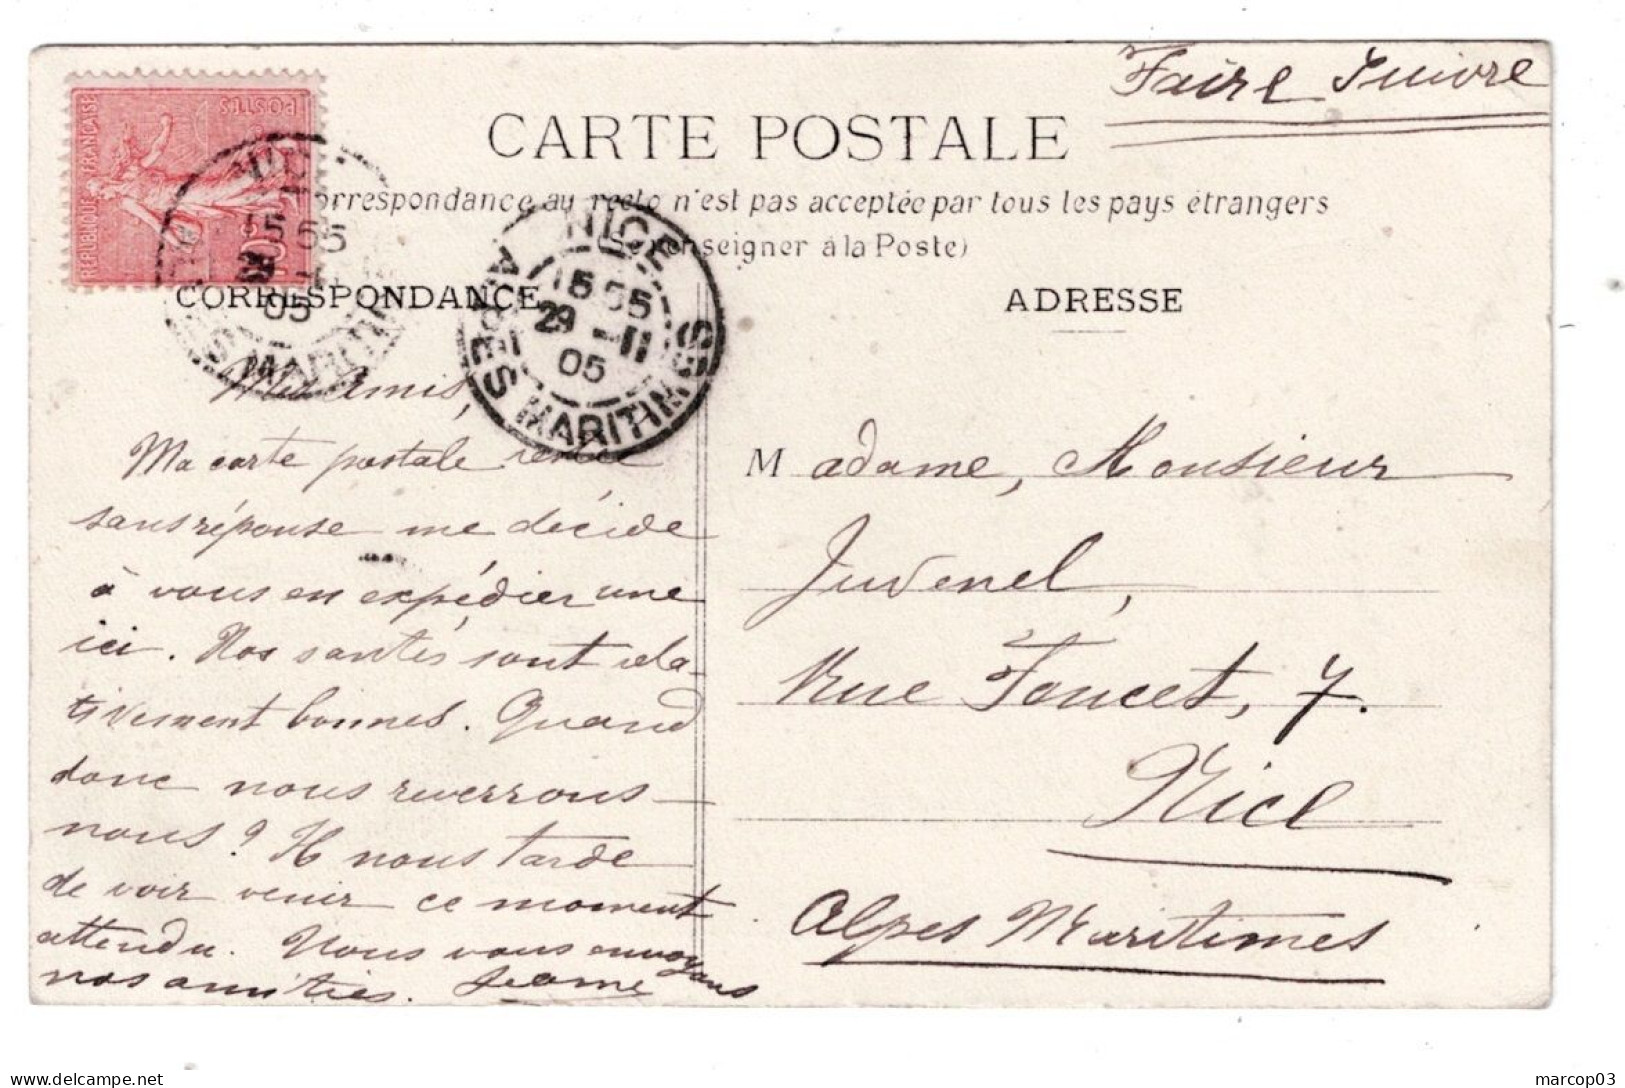 Faire Suivre
CARTE POSTALE
orrespondance au recto n'est pas acceptée par tous les pays étrangers
enseigner à la Poste)
CORRESPONDANCE
ADRESSE
REPUBLIQUE FRANÇAISE
POSTES
10
NICE
15 55
29 - 11
05
ALPES MARITIMES
15 55
05
Mes Amis,
Ma carte postale restée
sans réponse me décide
à vous en expédier une
ici. Nos santés sont rela-
tivement bonnes. Quand
donc nous reverrons-
nous? Il nous tarde
de voir venir ce moment
attendu. Nous vous envoyons
nos amitiés. Jeanne
Madame, Monsieur
Juvenel,
Rue Foncet, 7.
Nice
Alpes Maritimes
marcop03